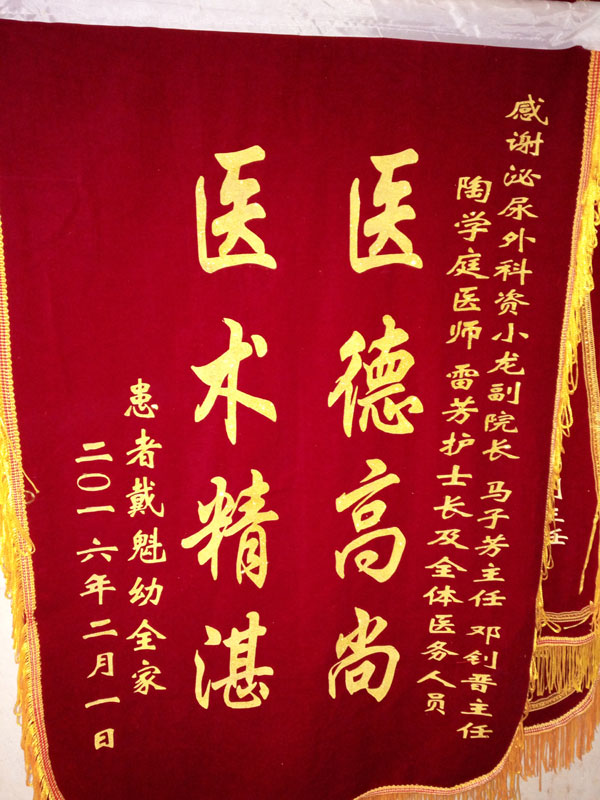 感谢泌尿外科资小龙副院长 马子芳主任 邓钊晋主任
陶学庭医师 雷芳护士长及全体医务人员
医德高尚
医术精湛
患者戴魁幼全家
二〇一六年二月一日
主任